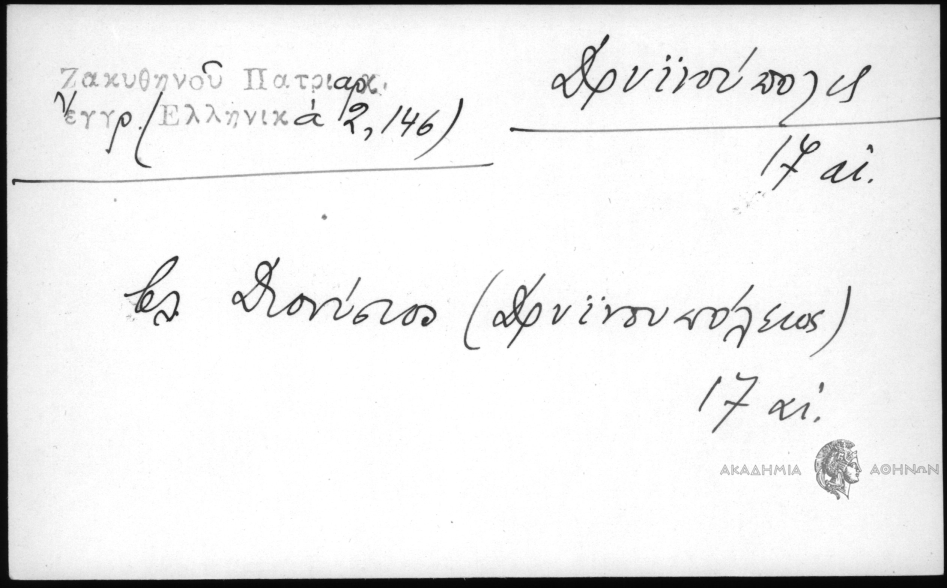 Ζακυθηνοῦ Πατριαρχ.
ἔγγρ. (Ἑλληνικά 2, 146)
Δρυϊνούπολις
17 αἰ.
βλ. Διονύσιος (Δρυϊνουπόλεως)
17 αἰ.
ΑΚΑΔΗΜΙΑ ΑΘΗΝΩΝ